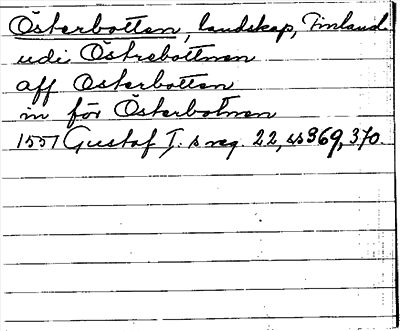 Österbotten, landskap, Finland
udi Östrebottnen
aff Osterbotten
in för Österbotnen
1557 Gustaf I. s reg. 22, ss 369, 370.